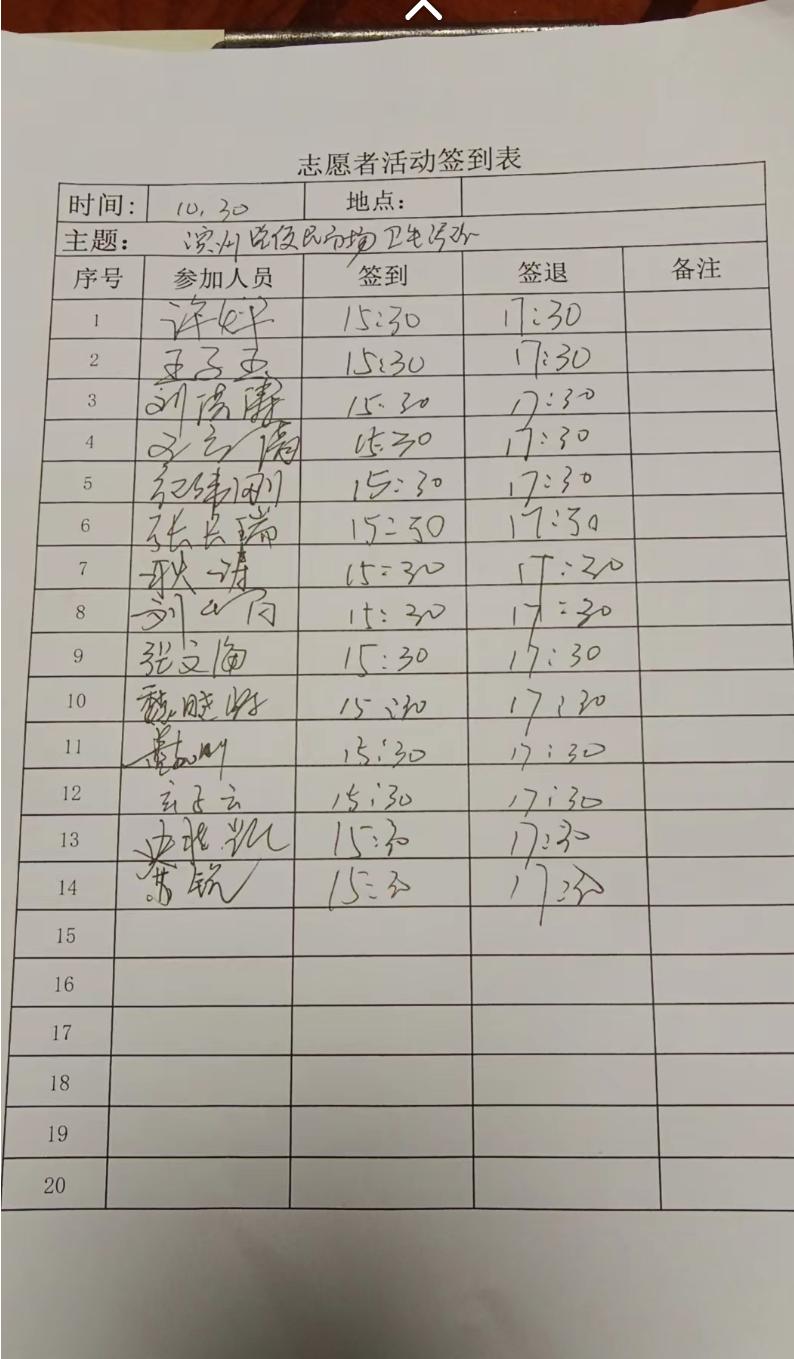 志愿者活动签到表
时间: 10.30 地点:
主题: 滨州 便民市场卫生
序号 参加人员 签到 签退 备注
1 许 15:30 17:30
2 王子玉 15:30 17:30
3 刘洪涛 15:30 17:30
4 15:30 17:30
5 纪纬刚 15:30 17:30
6 张长瑞 15:30 17:30
7 耿涛 15:30 17:30
8 刘 15:30 17:30
9 张文海 15:30 17:30
10 魏晓 15:30 17:30
11 15:30 17:30
12 15:30 17:30
13 15:30 17:30
14 苏锐 15:30 17:30
15
16
17
18
19
20